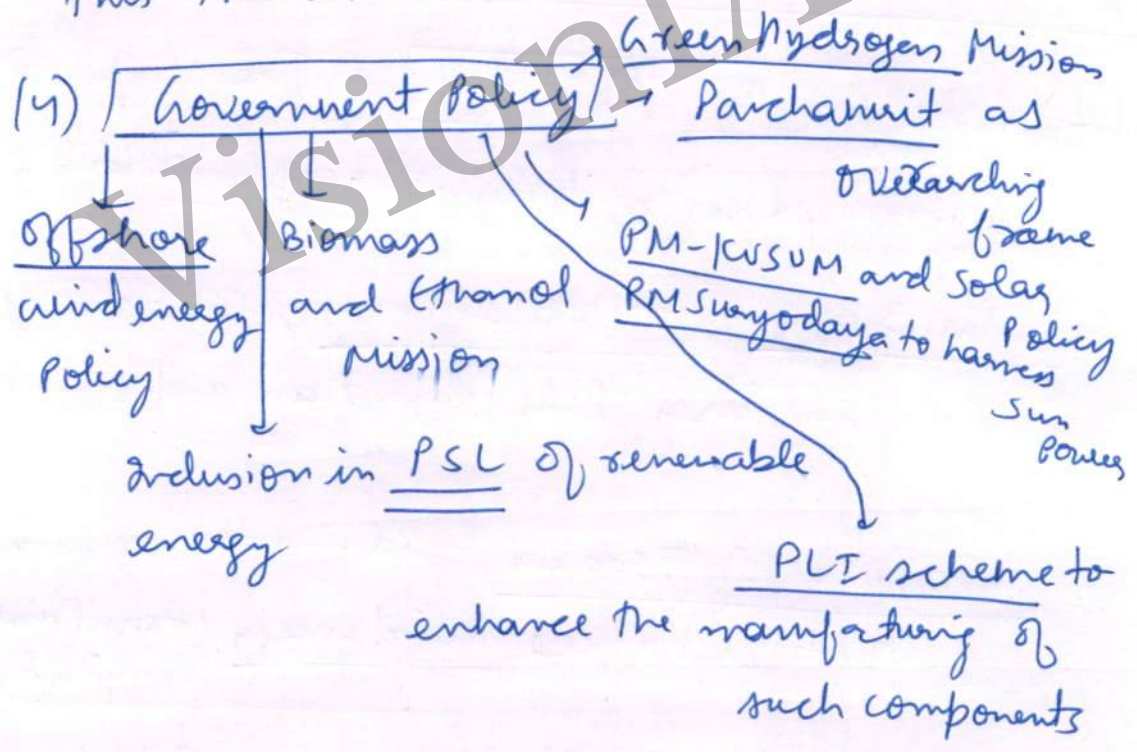 This
Green Hydrogen Mission
(4) Government Policy → Panchamrit as
overarching
frame
Offshore
wind energy
Policy
Biomass
and Ethanol
Mission
PM-KUSUM and Solar
Policy
PM Suryodaya to harness
Sun
Power
Inclusion in PSL of renewable
energy
PLI scheme to
enhance the manufacturing of
such components
Vision